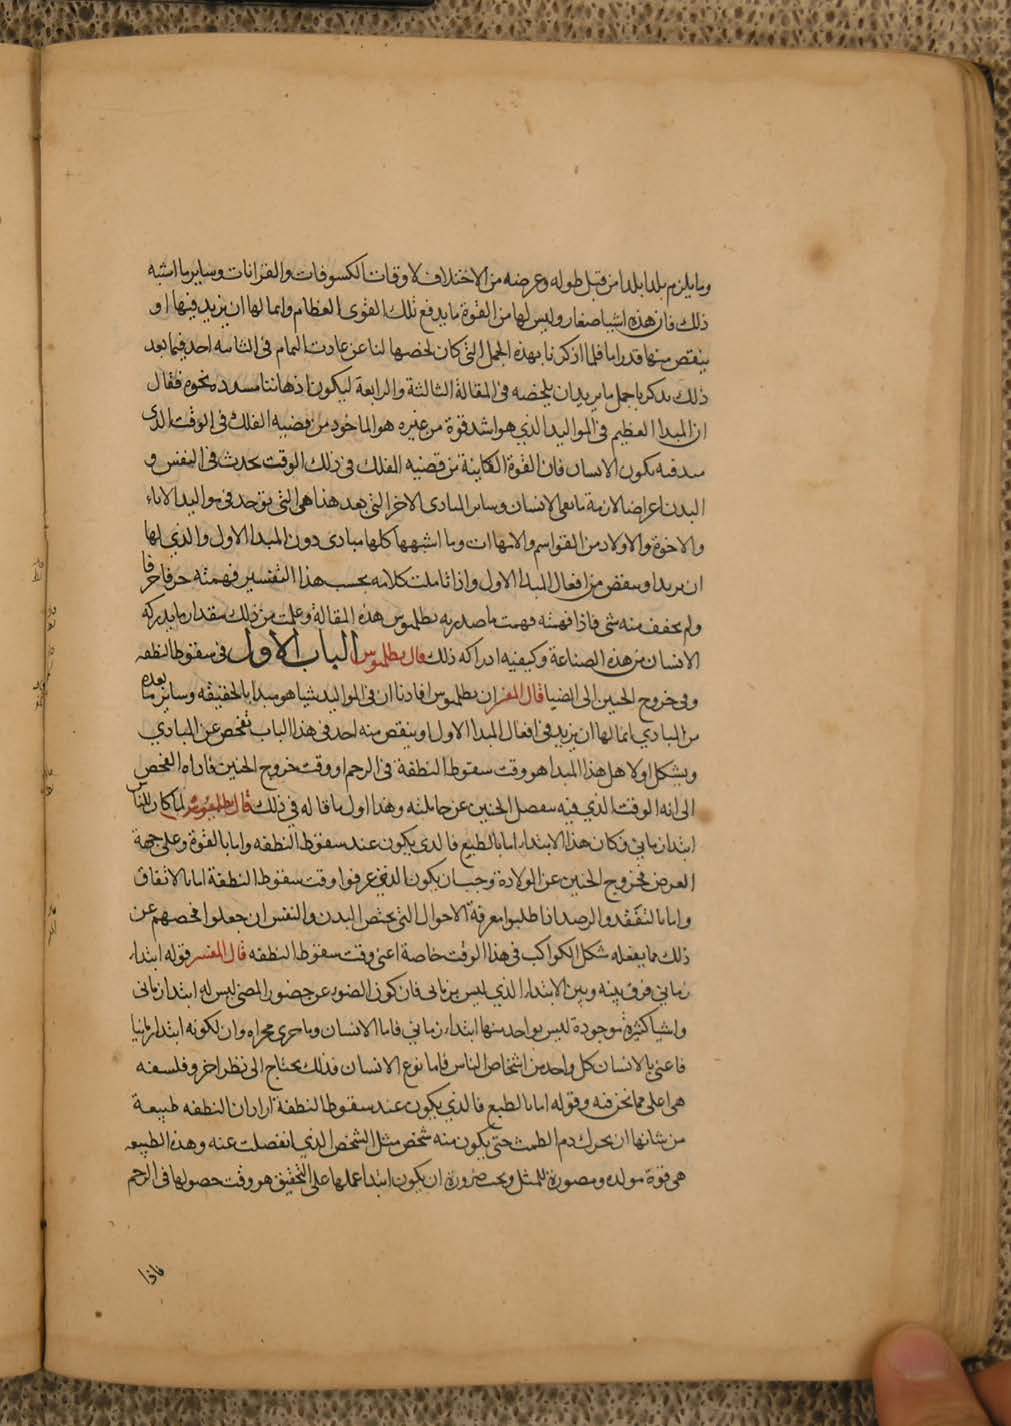 وما يلزم بلدا بلدا من قبل طوله وعرضه من الاختلاف لاوقات الكسوفات والقرانات وساير ما اشبه
ذلك فان هذه اشيا صغار وليس لها من القوة ما يدفع تلك القوى العظام وانما لها ان يزيد فيها او
ينقص منها قدرا ما فلما اذكرنا بهذه الجمل التي كان لخصها لنا عن عادت التمام في الثانيه اخذ فيما بعد
ذلك يذكرنا جمل ما يريد ان يلخصه في المقالة الثالثة والرابعة ليكون اذهاننا مسدده نحوه فقال
ان المبدا العظيم في المواليد الذي هو اشد قوة من غيره هو الماخوذ من قضيه الفلك في الوقت الذي
يبتدى فيه بكون الانسان فان القوة الكاينة من قضيه الفلك في ذلك الوقت تحدث في النفس و
البدن اعراضا لازمة ما بقى الانسان وساير المبادى الاخر التي بعد هذا هي التي توجد في مواليد الاباء
والاخوة والاولاد من القواسم والانتهاات وما اشبهها كلها مبادى دون المبدا الاول والذي لها
ان يزيد او ينقص من افعال المبدا الاول واذا تاملت كلامه بحسب هذا التفسير فهمته حرفا حرفا
ولم يخف منه شي فاذا فهمته فهمت ما صدر به بطلميوس هذه المقالة وعلمت من ذلك مقدار ما يدركه
الانسان من هذه الصناعة وكيفيه ادراكه ذلك قال بطلميوس الباب الاول في سقوط النطفه
وفي خروج الجنين الى الضيا قال المفسر ان بطلميوس افادنا ان في المواليد شيا هو مبدا بالحقيقه وساير ما بعده
من المبادي انما لها ان يزيد في افعال المبدا الاول او ينقص منه اخذ في هذا الباب تفحص عن المبادي
ويشكل اولا هل هذا المبدا هو وقت سقوط النطفة في الرحم او وقت خروج الجنين فاداه الفحص
الى انه الوقت الذي فيه ينفصل الجنين عن حاملته وهذا اول ما قاله في ذلك قال بطلميوس لما كان للناس
ابتدا زماني وكان هذا الابتداء اما بالطبع فالذي يكون عند سقوط النطفه واما بالقوة وعلى جهة
العرض فخروج الجنين عن الولادة وجب ان يكون الذين عرفوا وقت سقوط النطفة اما بالاتفاق
واما بالتفقد والرصد اذا طلبوا معرفة الاحوال التي تخص البدن والنفس ان جعلوا فحصهم عن
ذلك مما يفعله شكل الكواكب في هذا الوقت خاصة اعني وقت سقوط النطفه قال المفسر قوله ابتداء
زماني فرق بينه وبين الابتداء الذي ليس بزماني فان كون الضوء عن حضور المضي ليس له ابتدا زماني
واشيا كثيرة موجودة ليس بواحد منها ابتداء زماني فاما الانسان وما جرى مجراه وان لكونه ابتدا زمانيا
فاعني بالانسان كل واحد من اشخاص الناس فاما نوع الانسان فذلك يحتاج الى نظر اخر وفلسفه
هي اعلى مما نحن فيه وقوله اما بالطبع فالذي يكون عند سقوط النطفة اراد ان النطفه طبيعة
من شانها ان تحرك دم الطمث حتى يكون منه شخص مثل الشخص الذي انفصلت عنه وهذه الطبيعه
هي قوة مولده ومصورة للمثل ويجب ضرورة ان يكون ابتدا عملها على التحقيق هو وقت حصولها في الرحم
فاذا